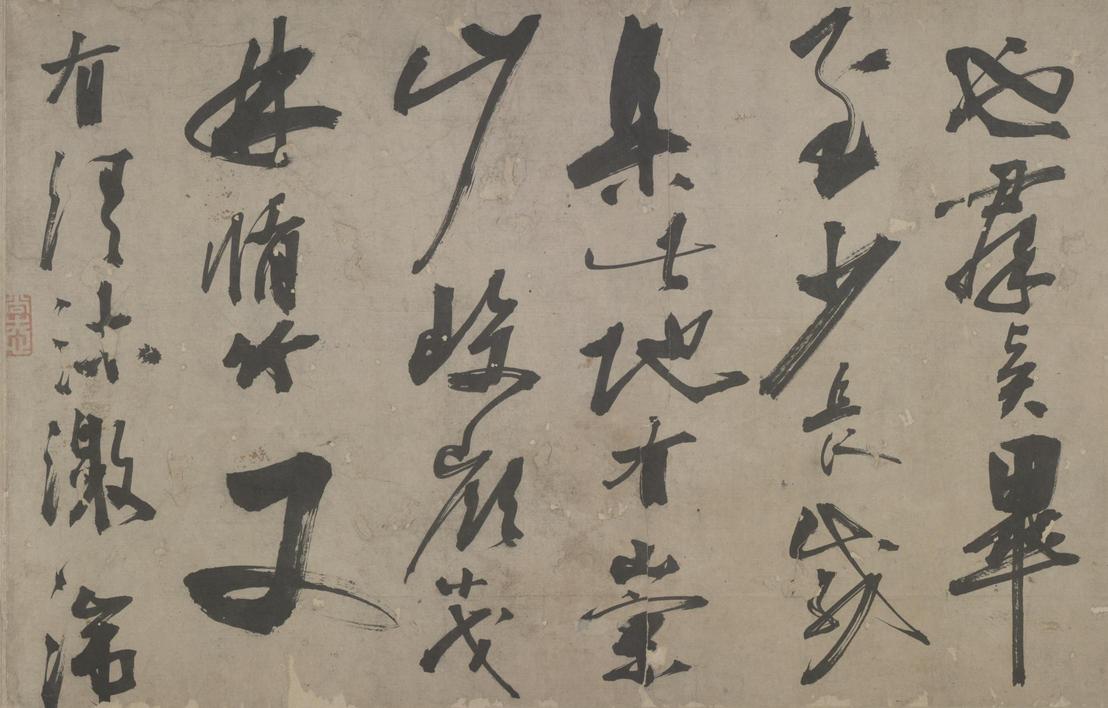 也羣賢畢
至少長咸
集此地有崇
山峻嶺茂
林脩竹又
有清流激湍